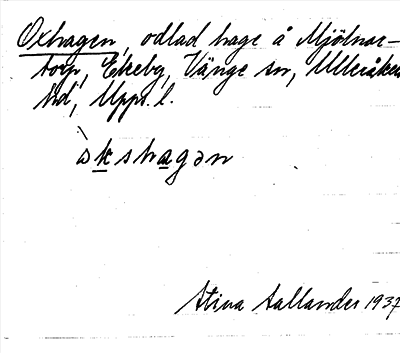 Oxhagen, odlad hage å Mjölnare-
torp, Ekeby, Vänge sn, Ulleråkers
hd, Upps. l.
ò̀kshagən
Stina Sallander 1937